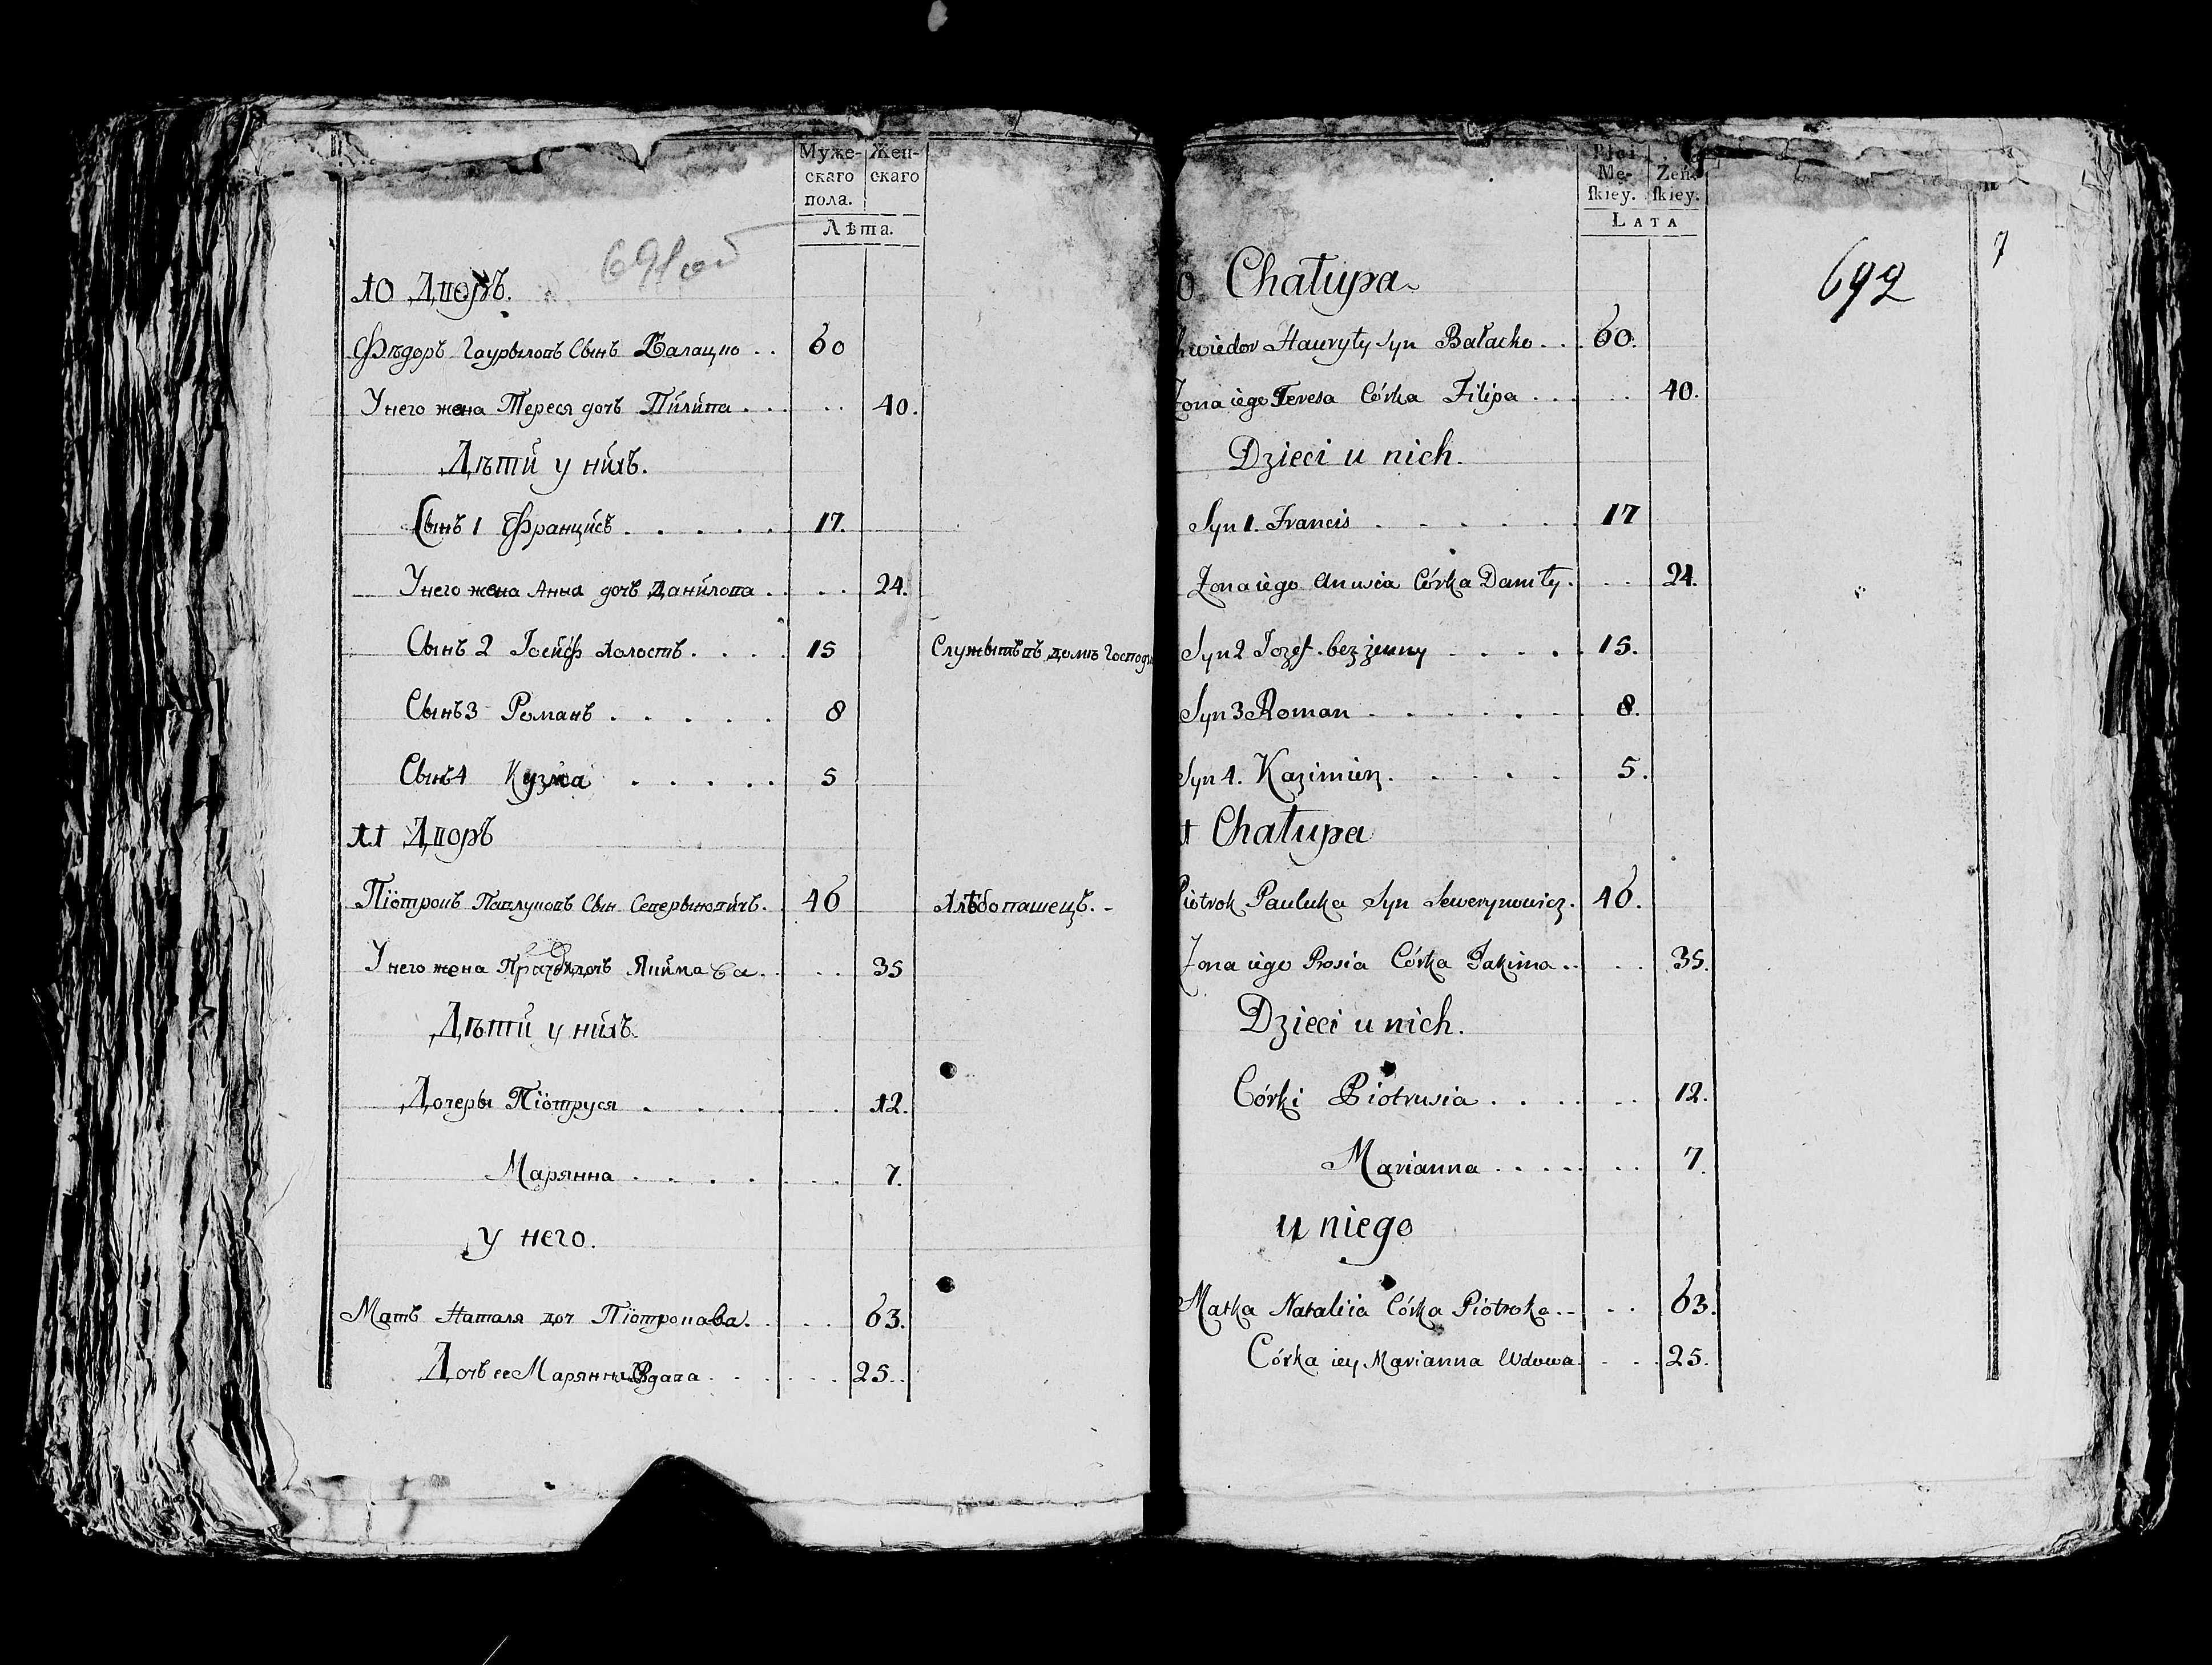 Муже-
скаго
пола.
Жен-
скаго
Лѣта.
10 Дворъ.
Фѣдоръ Гаурыловъ Сынъ Балацко . . 60
У него жена Тереся дочь Пилипа . . . . . 40.
Дѣти у нихъ.
Сынъ 1 Францисъ . . . . . 17.
У него жена Анна дочь Данилова . . . . 24.
Сынъ 2 Іосифъ холостъ . . . . 15 Служытъ въ домѣ Господ
Сынъ 3 Романъ . . . . . 8
Сынъ 4 Кузма . . . . . 5
11 Дворъ
Піотрокъ Павлуковъ Сын Северыновичъ. 46 Хлѣбопашецъ. -
У него жена дочь Якимава . . . . 35
Дѣти у нихъ.
Дочеры Піотруся . . . . . . . 12.
Марянна . . . . . . . 7.
у него.
Мать Наталя доч Піотрокава. . . . 63.
Дочь ее Марянна Вдава . . . . . . 25.
Płci
Mę-
ſkiey.
Żeń-
ſkiey.
LATA
692
7
0 Chałupa
hwiedor Hauryły Syn Bałacko . . . 60.
Żona iego Teresa Córka Filipa . . . . . 40.
Dzieci u nich.
Syn 1. Francis . . . . . . 17
Żona iego Anusia Córka Daniły . . . 24.
Syn 2 Jozef bez żenny . . . . . 15.
Syn 3 Roman . . . . . . 8.
Syn 4. Kazimierz . . . . . 5.
1 Chałupa
Piotrok Pauluka Syn Sewerynowicz. 46.
Żona iego Prosia Córka Jakima . . . . 35.
Dzieci u nich.
Córki Piotrusia . . . . . . 12.
Marianna . . . . . . . 7.
u niego
Matka Nataliia Córka Piotroka . - . . 63.
Córka iey Marianna Wdowa . . . . 25.